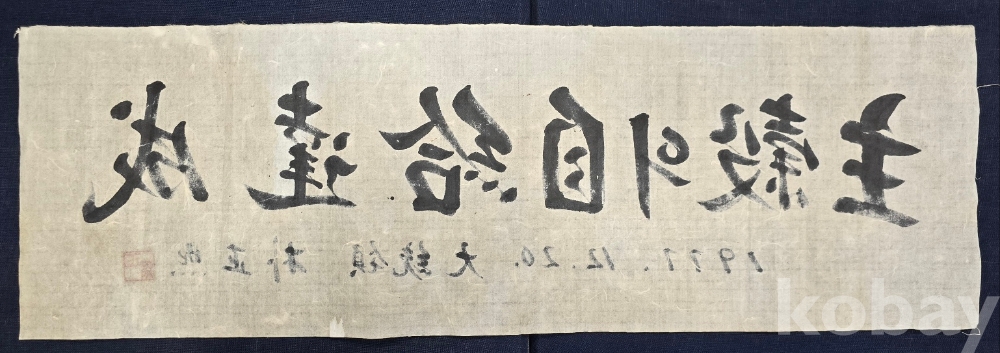 主穀의自給達成
1977. 12. 20. 大統領 朴正熙
kobay